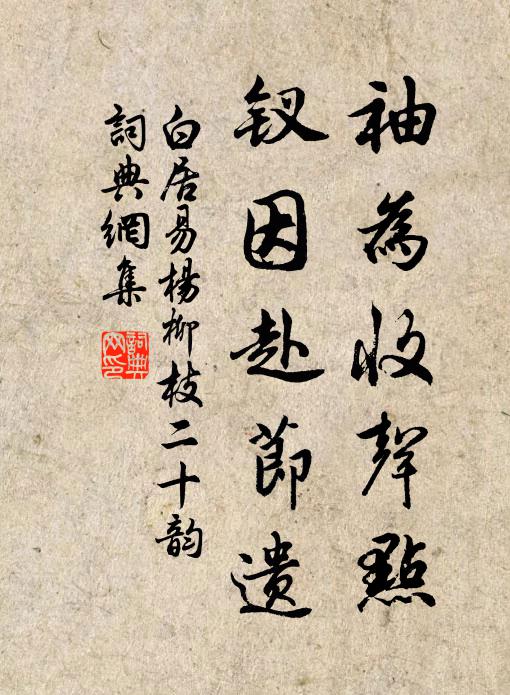 袖為收聲點
釵因赴節遺
白居易楊柳枝二十韵
詞典網集
詞典
网印